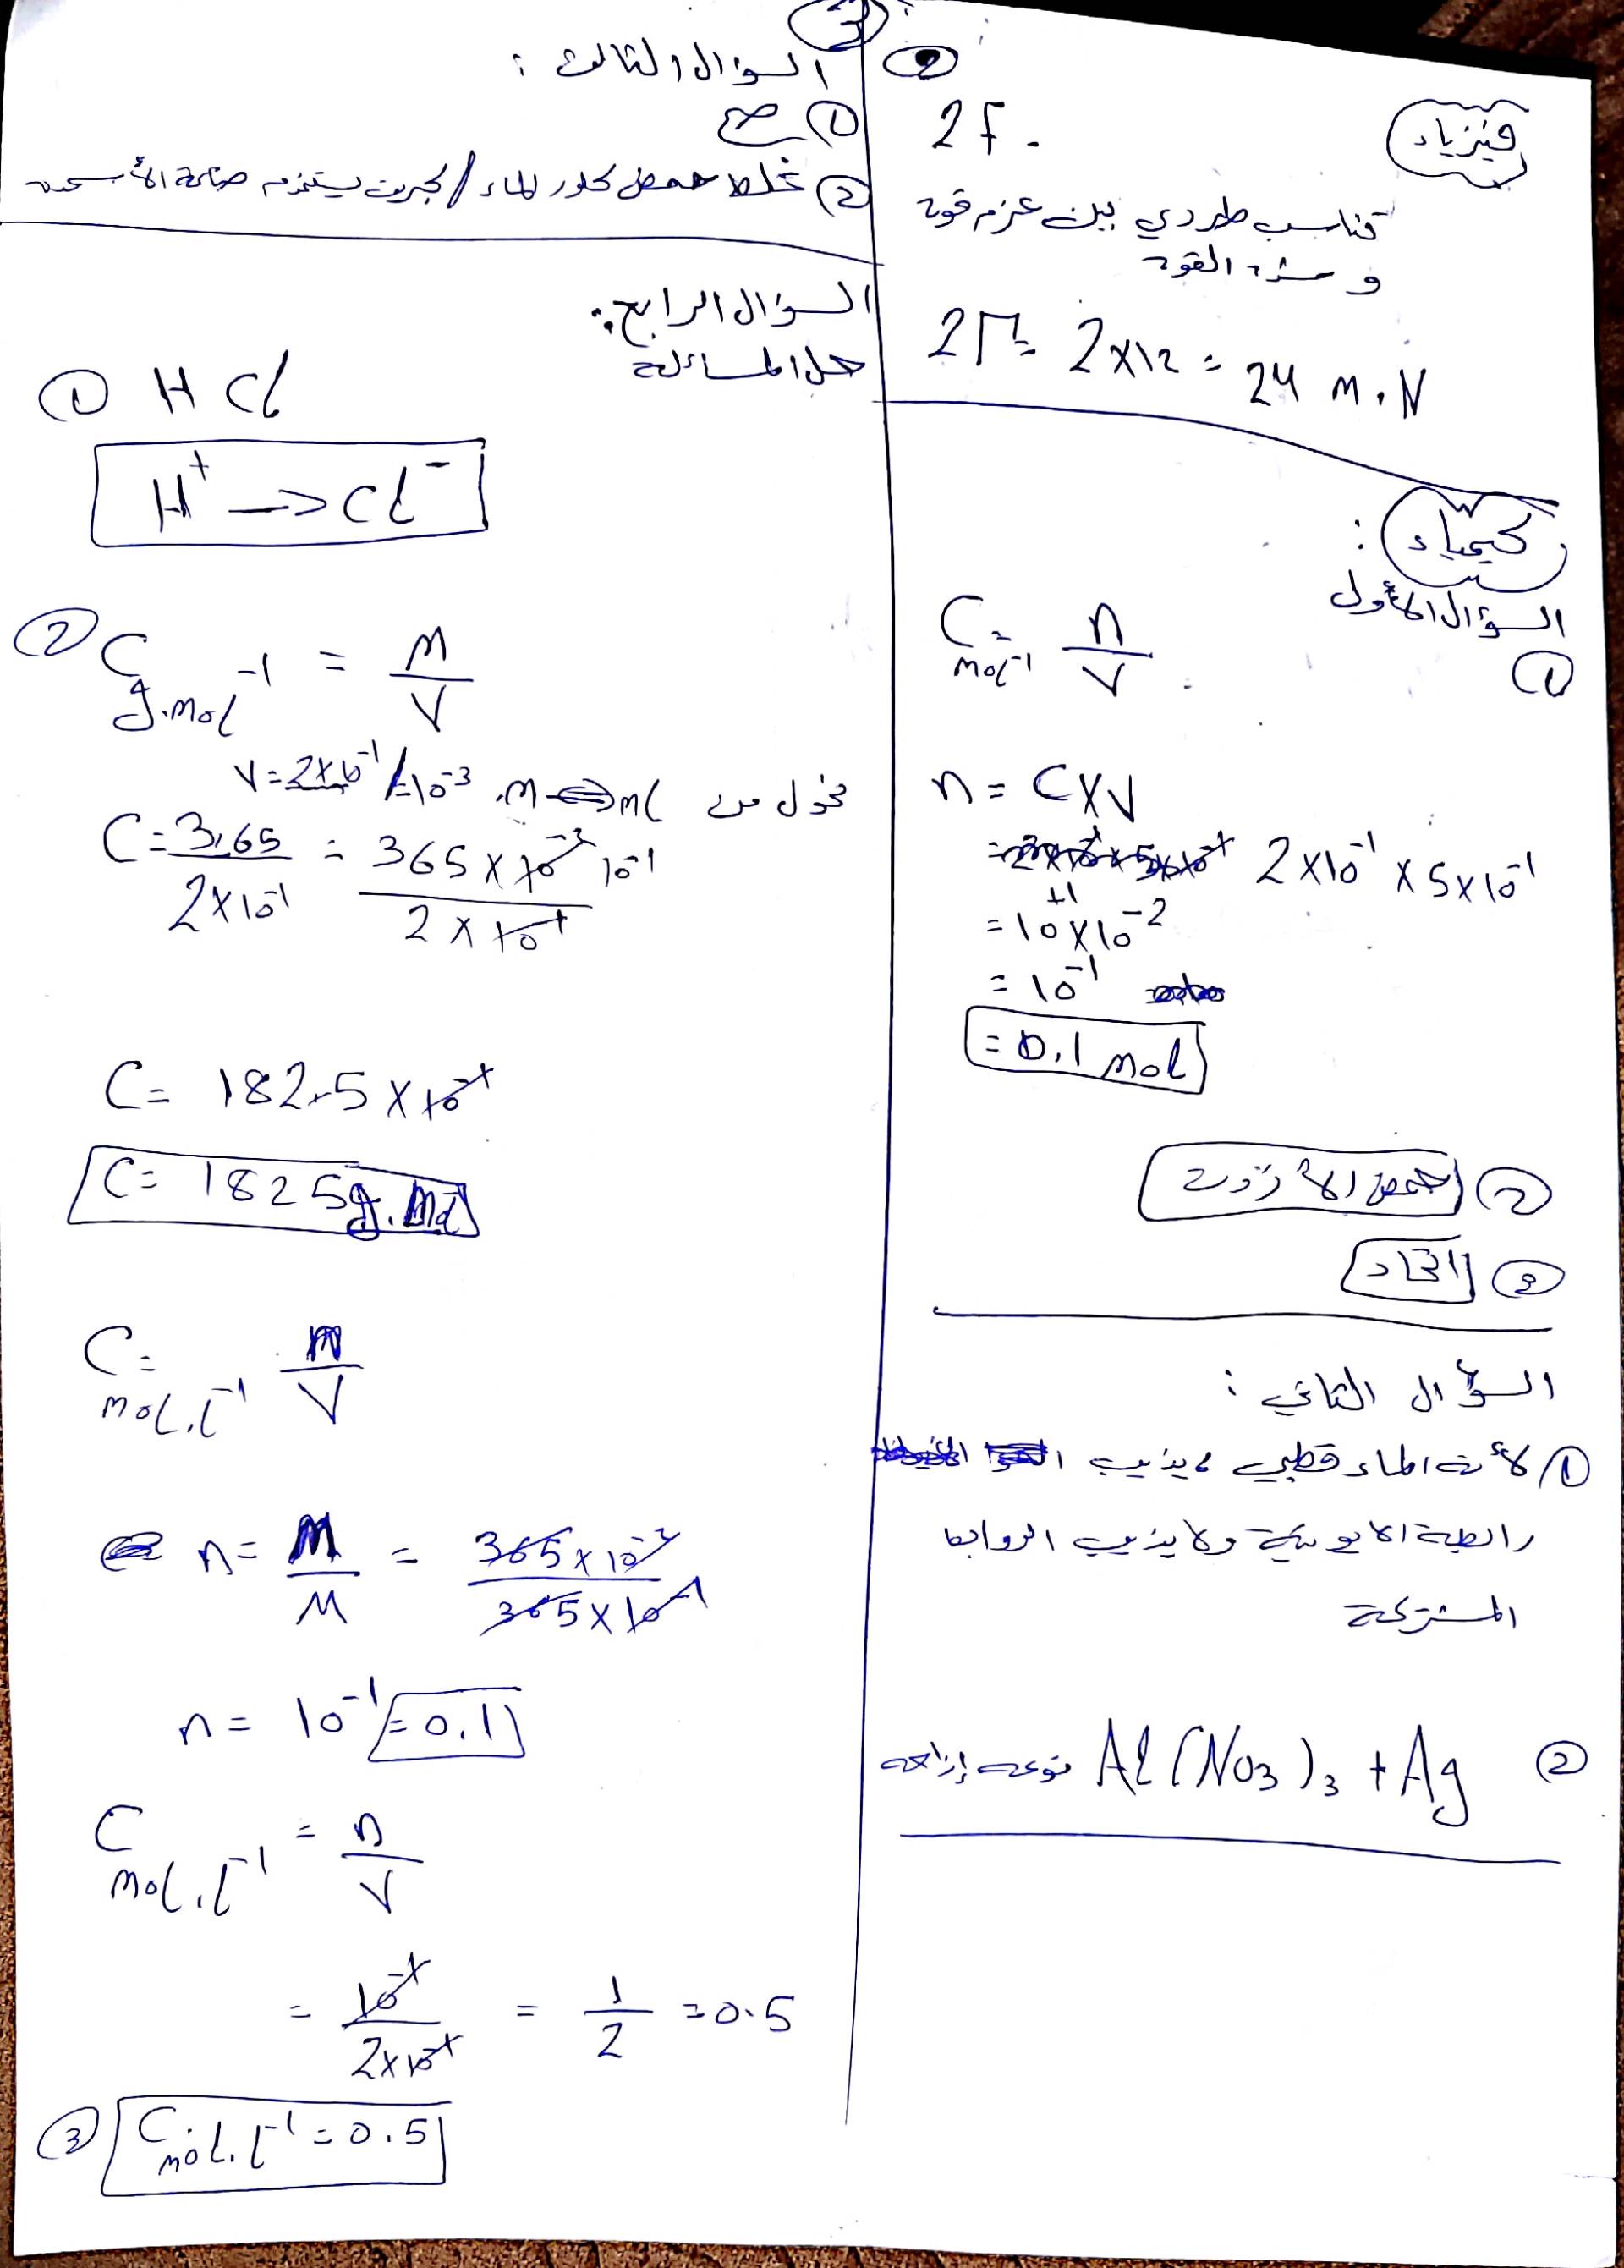 3
فيزياء
2F.
تناسب طردي بين عزم قوة
و شدة القوة
2Γ = 2×12 = 24 m.N
كيمياء :
السؤال الأول
①
C mol⁻¹ = n/V
n = C×V
2×10⁻¹ × 5×10⁻¹
= 10⁺¹×10⁻²
= 10⁻¹
= 0.1 mol
② حمض الآزوت
③ اتحاد
السؤال الثاني :
① لأن الماء قطبي يذيب
رابطة الايونية ولا يذيب الروابط
المشتركة
② Al(NO3)3 + Ag نوعه إزاحة
السؤال الثالث :
① صح
② غلط حمض كلور الماء / كبريت يستخدم صناعة الأسمدة
السؤال الرابع :
حل المسألة
① H Cl
H⁺ —> Cl⁻
② C g.mol⁻¹ = m/V
V = 2×10⁻¹ 10⁻³ .m ⇔ ml نحول من
C = 3,65/2×10⁻¹ = 365×10⁻²/2×10⁻¹ 10⁻¹
C = 182.5 × 10⁻¹
C = 1825 g.
C mol.l⁻¹ = n/V
n = m/M = 365×10⁻²/365×10⁻¹
n = 10⁻¹ = 0.1
C mol.l⁻¹ = n/V
= 10⁻¹/2×10⁻¹ = 1/2 = 0.5
③ C mol.l⁻¹ = 0.5